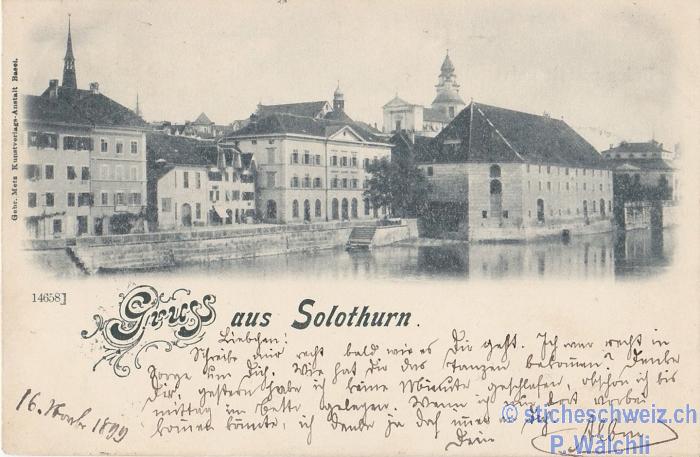 Gebr. Metz Kunstverlags-Anstalt Basel.
14658
Gruss aus Solothurn.
Liebchen:
Schreibe mir recht bald wie es Dir geht. Ich war recht in
Sorge um Dich. Wie hat dir das Tanzen bekommen? Denke
Dir, gestern habe ich keine Minute geschlafen, obschon ich bis
mittag im Bette gelegen. Wenn ich nur dort vorbei
kommen könnte, ich denke ja doch immer an Dich
Dein
16. 1899
© sticheschweiz.ch
P. Wälchli